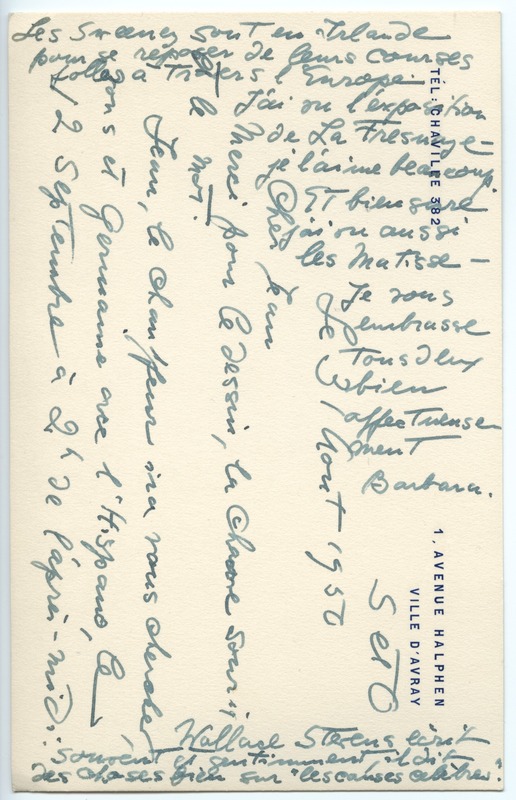 TÉL: CHAVILLE 382
1, AVENUE HALPHEN
VILLE D'AVRAY
S et O
Août 1950
Cher Jean
Merci pour le dessin, la chauve souris,
et le mot.
Jean, le chauffeur ira vous chercher
vous et Germaine avec l'Hispano, le
12 Septembre à 2h de l'après-midi.
Les Sweeney sont en Irlande
pour se reposer de leurs courses
folles à travers l'Europe.
J'ai vu l'exposition
de La Fresnaye –
je l'aime beaucoup
Et bien sure
j'ai vu aussi
les Matisse –
Je vous
embrasse
tous deux
bien
affectueuse
ment
Barbara.
Wallace Stevens écrit
souvent et gentimment il dit
des choses bien sur "les causes celèbres".